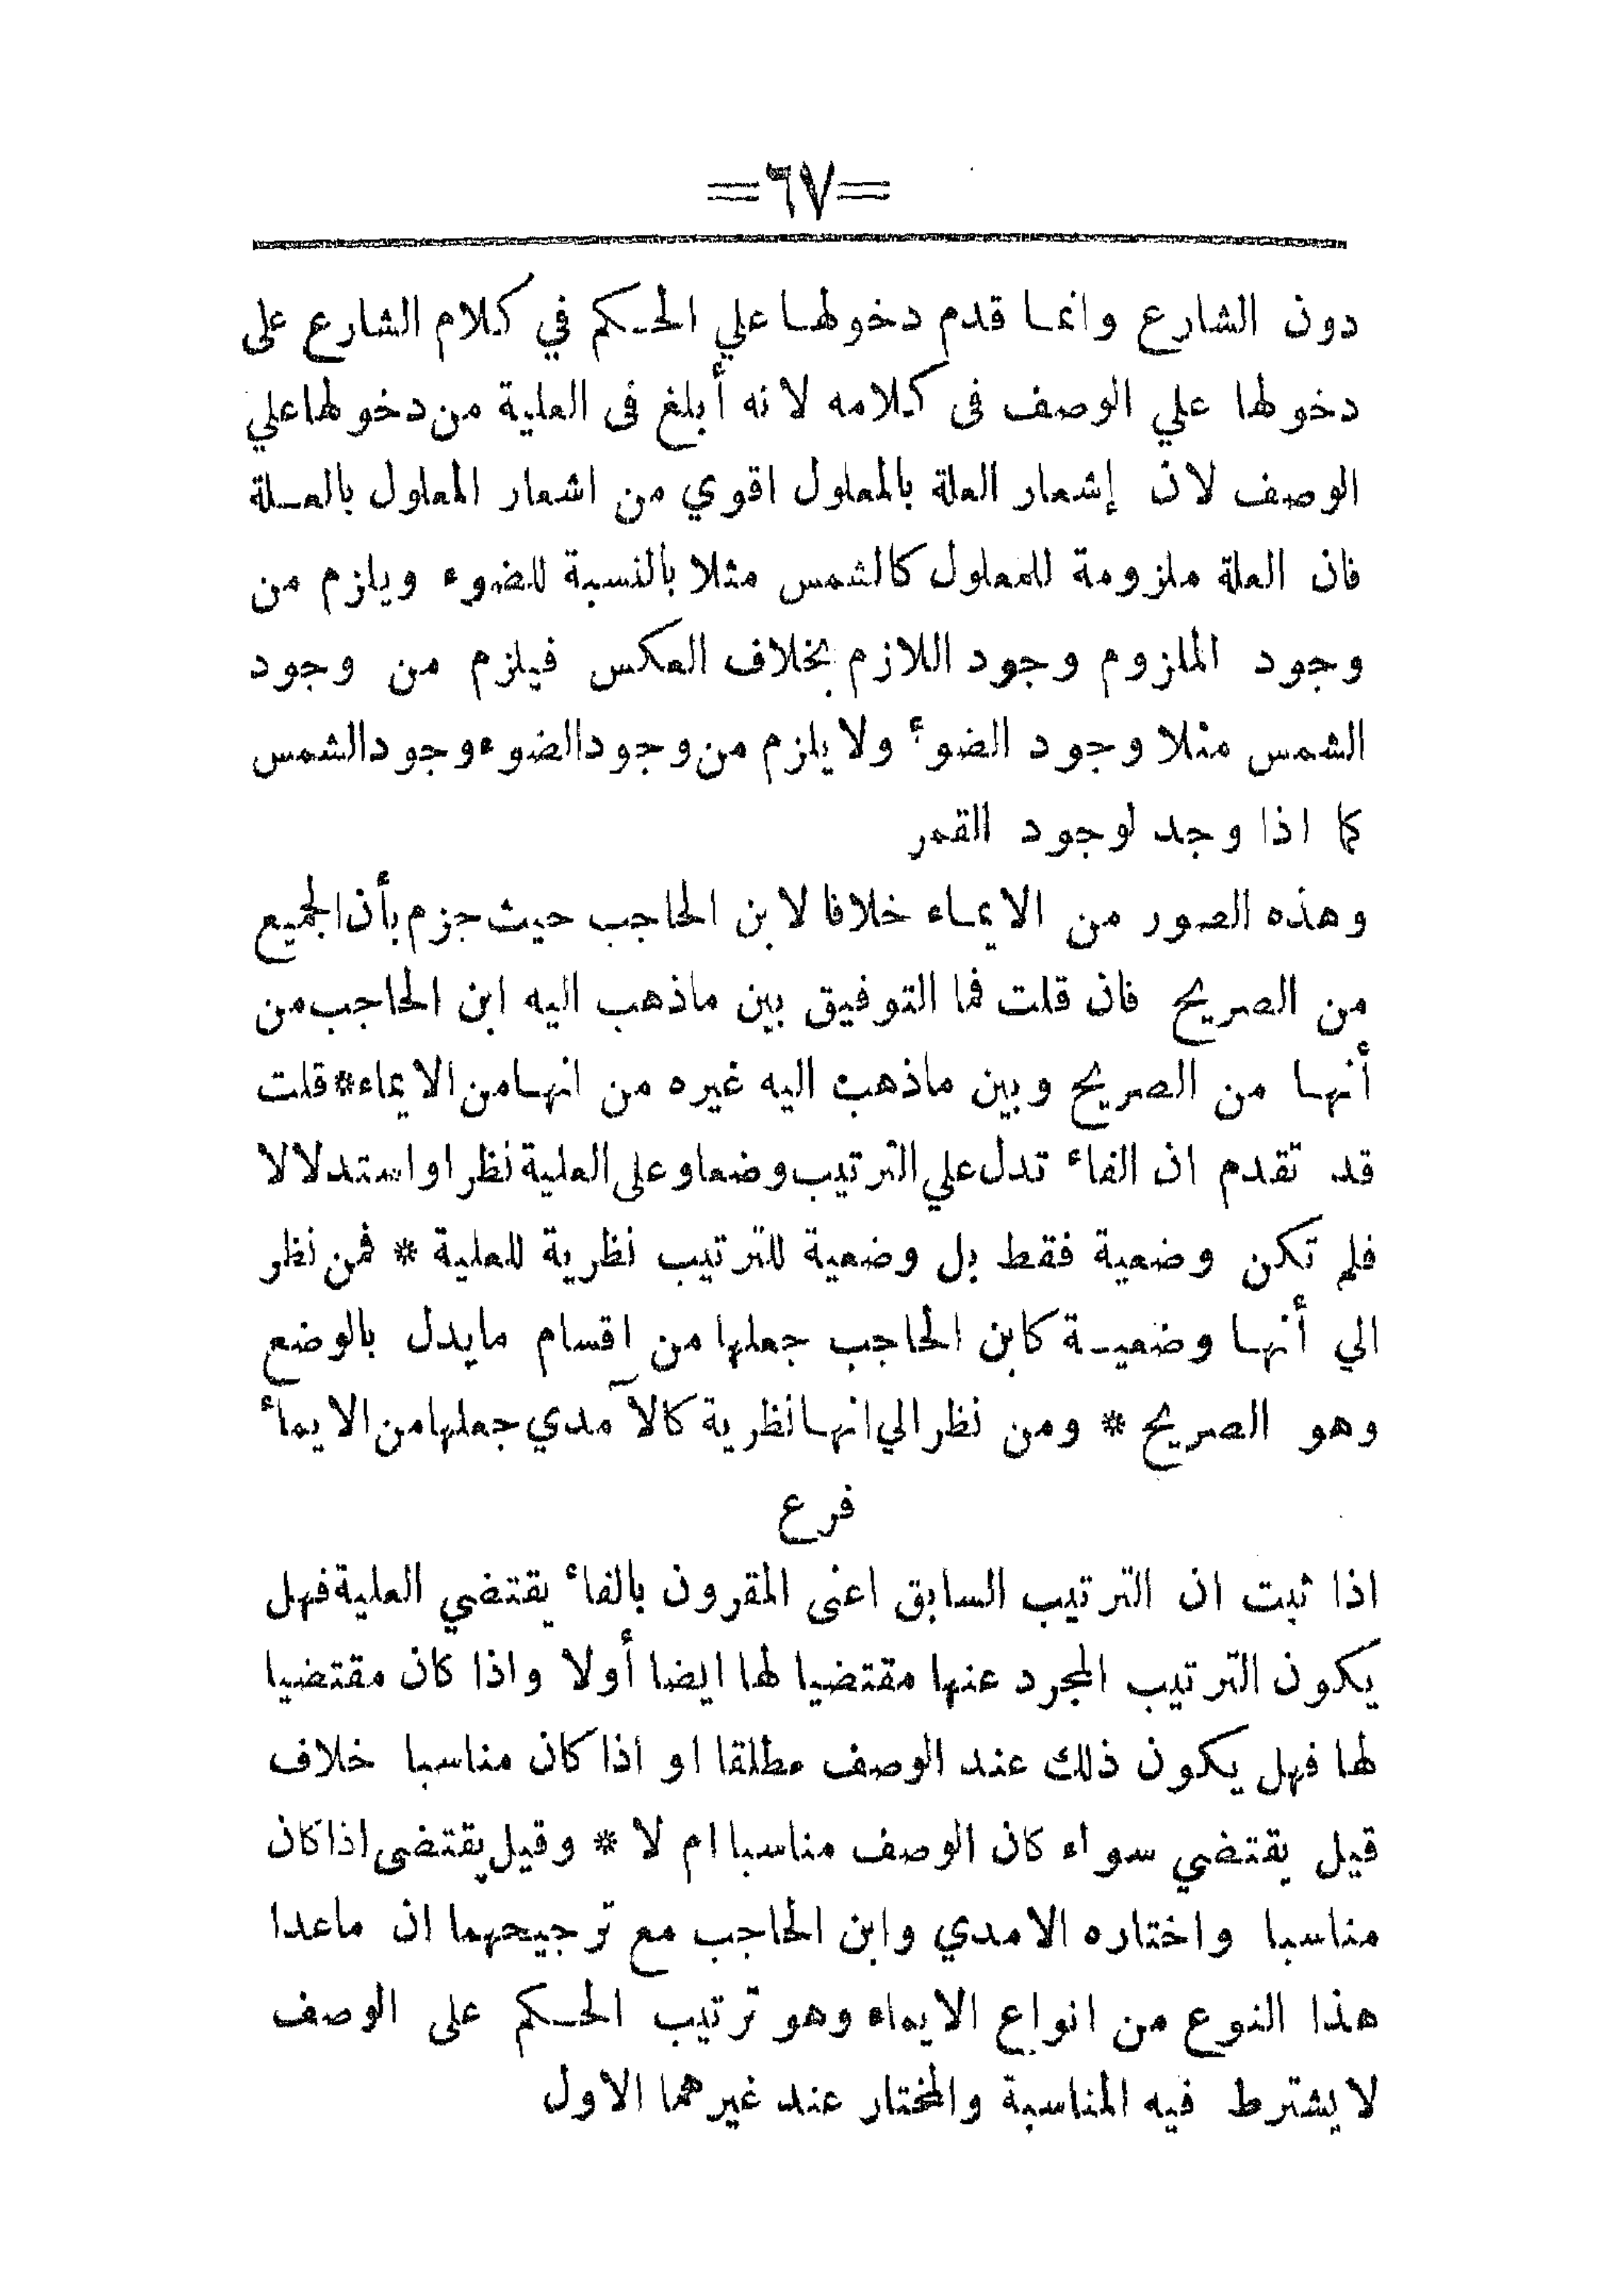 =٦٧=
دون الشارع وانما قدم دخولها علي الحكم في كلام الشارع على
دخولها علي الوصف فى كلامه لانه أبلغ فى العلية من دخولها علي
الوصف لان إشعار العلة بالمعلول اقوي من اشعار المعلول بالعلة
فان العلة ملزومة للمعلول كالشمس مثلا بالنسبة للضوء ويلزم من
وجود الملزوم وجود اللازم بخلاف العكس فيلزم من وجود
الشمس مثلا وجود الضوء ولا يلزم من وجود الضوء وجود الشمس
كما اذا وجد لوجود القمر
وهذه الصور من الايماء خلافا لابن الحاجب حيث جزم بأن الجميع
من الصريح فان قلت فما التوفيق بين ماذهب اليه ابن الحاجب من
أنها من الصريح وبين ماذهب اليه غيره من انها من الايماء * قلت
قد تقدم ان الفاء تدل علي الترتيب وضعا وعلى العلية نظرا واستدلالا
فلم تكن وضعية فقط بل وضعية للترتيب نظرية للعلية * فمن نظر
الي أنها وضعية كابن الحاجب جعلها من اقسام مايدل بالوضع
وهو الصريح * ومن نظر الي انها نظرية كالآمدي جعلها من الايماء
فرع
اذا ثبت ان الترتيب السابق اعنى المقرون بالفاء يقتضي العلية فهل
يكون الترتيب المجرد عنها مقتضيا لها ايضا أولا واذا كان مقتضيا
لها فهل يكون ذلك عند الوصف مطلقا او اذا كان مناسبا خلاف
قيل يقتضي سواء كان الوصف مناسبا ام لا * وقيل يقتضى اذا كان
مناسبا واختاره الامدي وابن الحاجب مع ترجيحهما ان ماعدا
هذا النوع من انواع الايماء وهو ترتيب الحكم على الوصف
لا يشترط فيه المناسبة والمختار عند غيرهما الاول